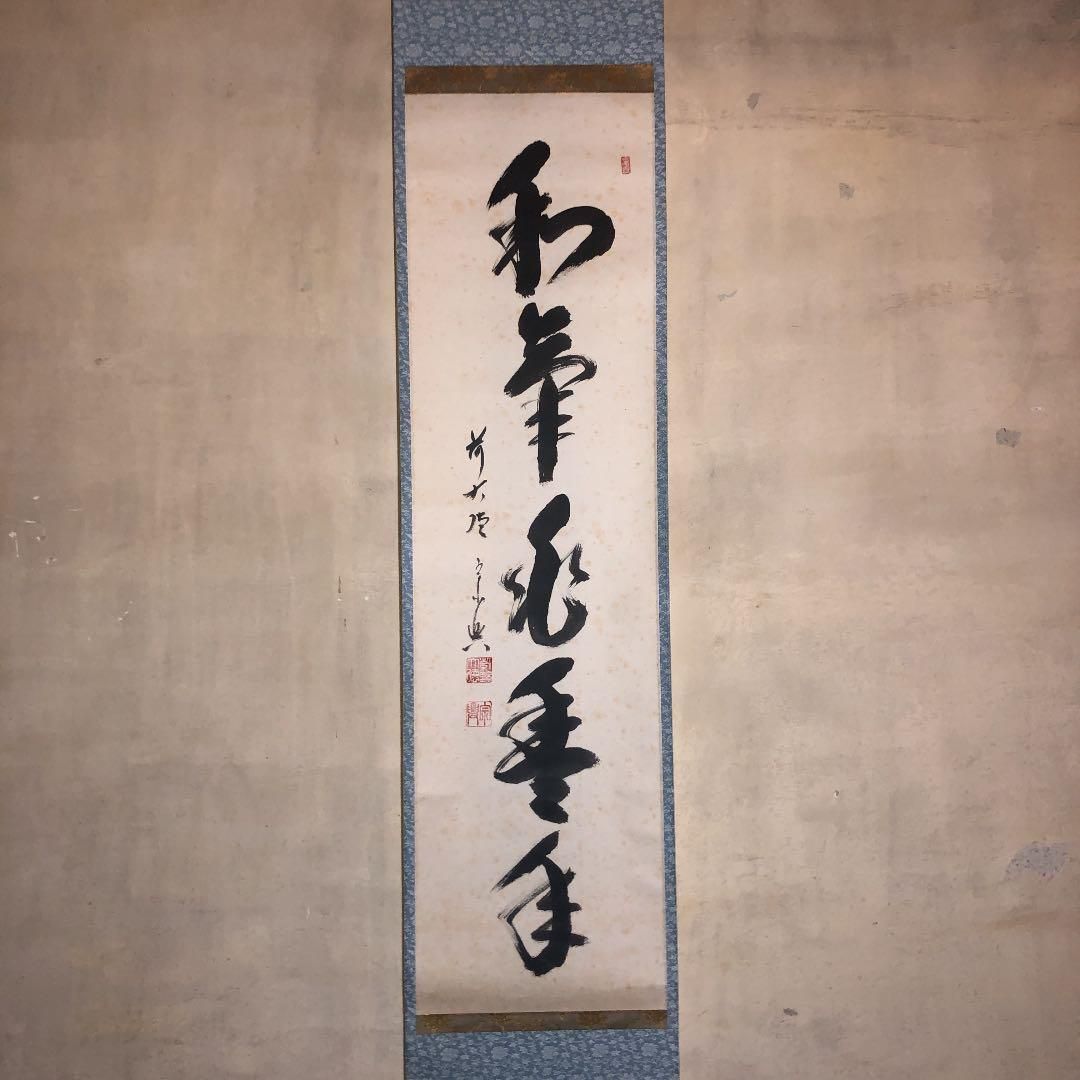 和氣兆豊年
前大徳 宗興